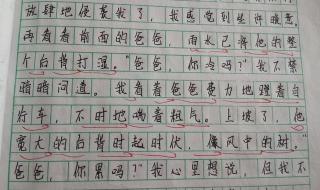 放肆地侵袭我了，我感觉到坐许暖意。
再看看前面的爸爸，雨水已将他的整
个后背打湿。“爸爸，你冷吗？”我不禁
暗暗问道。我看着爸爸费力地蹬着自
行车，不时地喘着粗气。上坡了，他
宽大的后背时起时伏，像风中的树。“
爸爸，你累吗？”我心里想说，但我不